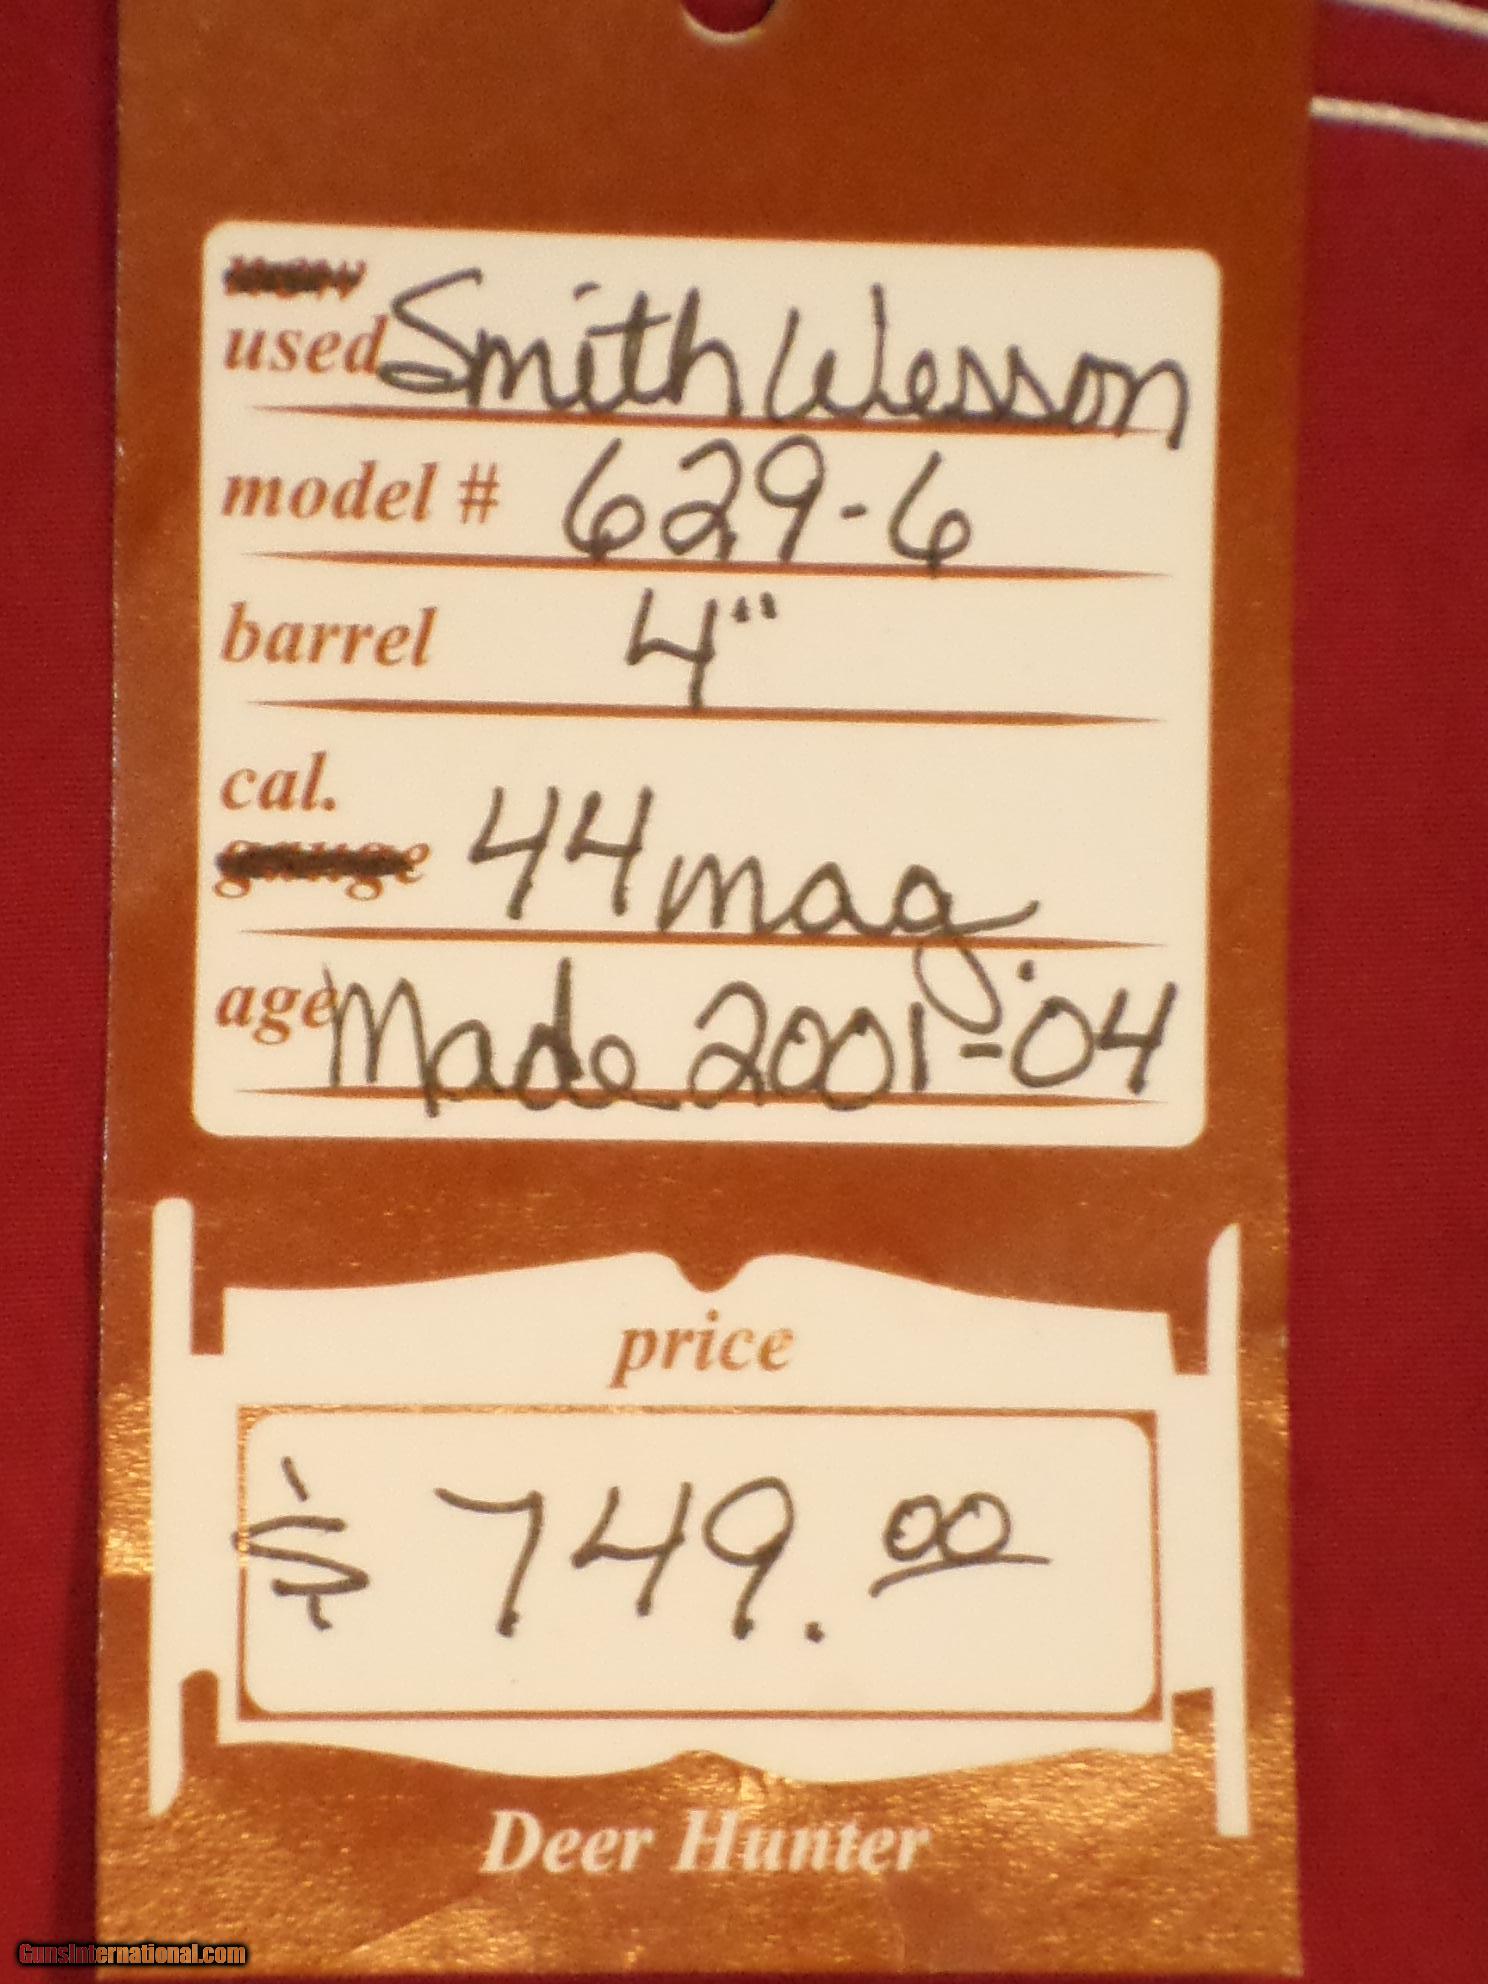 used Smith Wesson
model # 629-6
barrel 4"
cal.
gauge 44 mag.
age Made 2001-'04
price
$ 749.00
Deer Hunter
GunsInternational.com